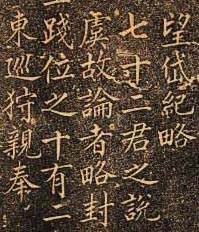 望岱紀略
七十二君之說
虞故論者略封
踐位之十有二
東巡狩親奉